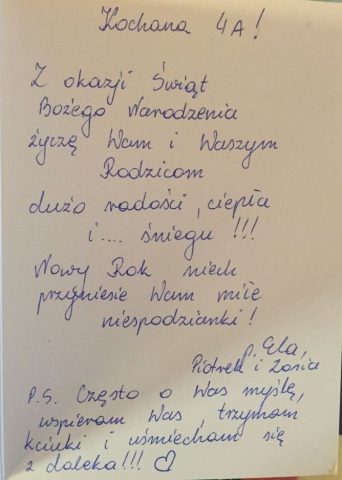 Kochana 4A!
Z okazji Świąt
Bożego Narodzenia
życzę Wam i Waszym
Rodzicom
dużo radości, ciepła
i .... śniegu !!!
Nowy Rok niech
przyniesie Wam miłe
niespodzianki!
p. Ela,
Piotrek i Zosia
P.S. Często o Was myślę,
wspieram Was, trzymam
kciuki i uśmiecham się
z daleka!!! ♡